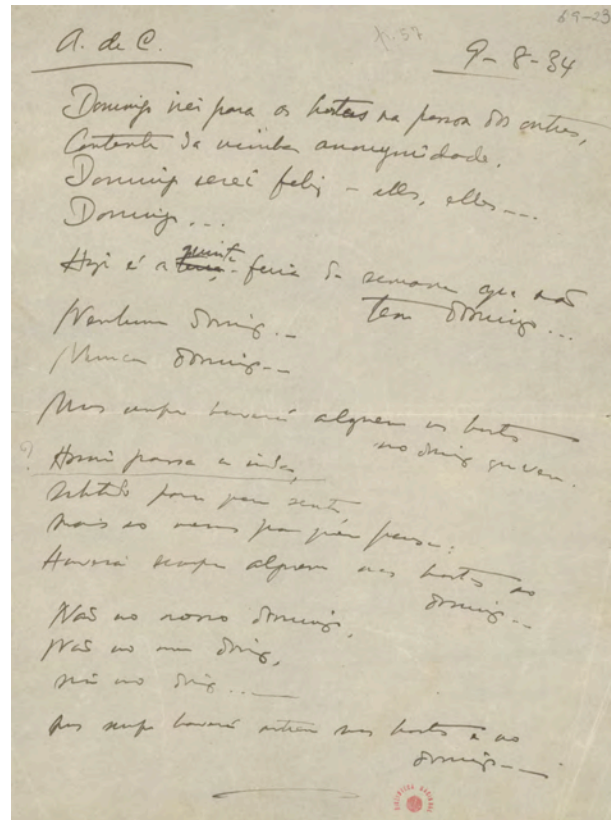 69-23
A. de C.
9-8-34
Domingo irei para as hortas na pessoa dos outros,
Contente da minha anonymidade.
Domingo serei feliz – elles, elles...
Domingo...
Hoje é a quinta-feira da semana que não
tem domingo...
Nenhum domingo...
Nunca domingo...
Mas sempre haverá alguem nas hortas
no domingo que vem.
Assim passa a vida,
Subtil para quem sente,
Mais ou menos para quem pensa:
Haverá sempre alguem nas hortas ao
domingo...
Não no nosso domingo,
Não no meu domingo,
Não no domingo...
Mas sempre haverá outros nas hortas e ao
domingo...